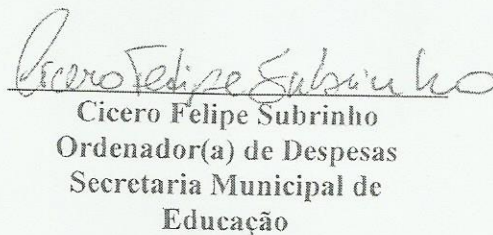 Cicero Felipe Subrinho
Cicero Felipe Subrinho
Ordenador(a) de Despesas
Secretaria Municipal de
Educação